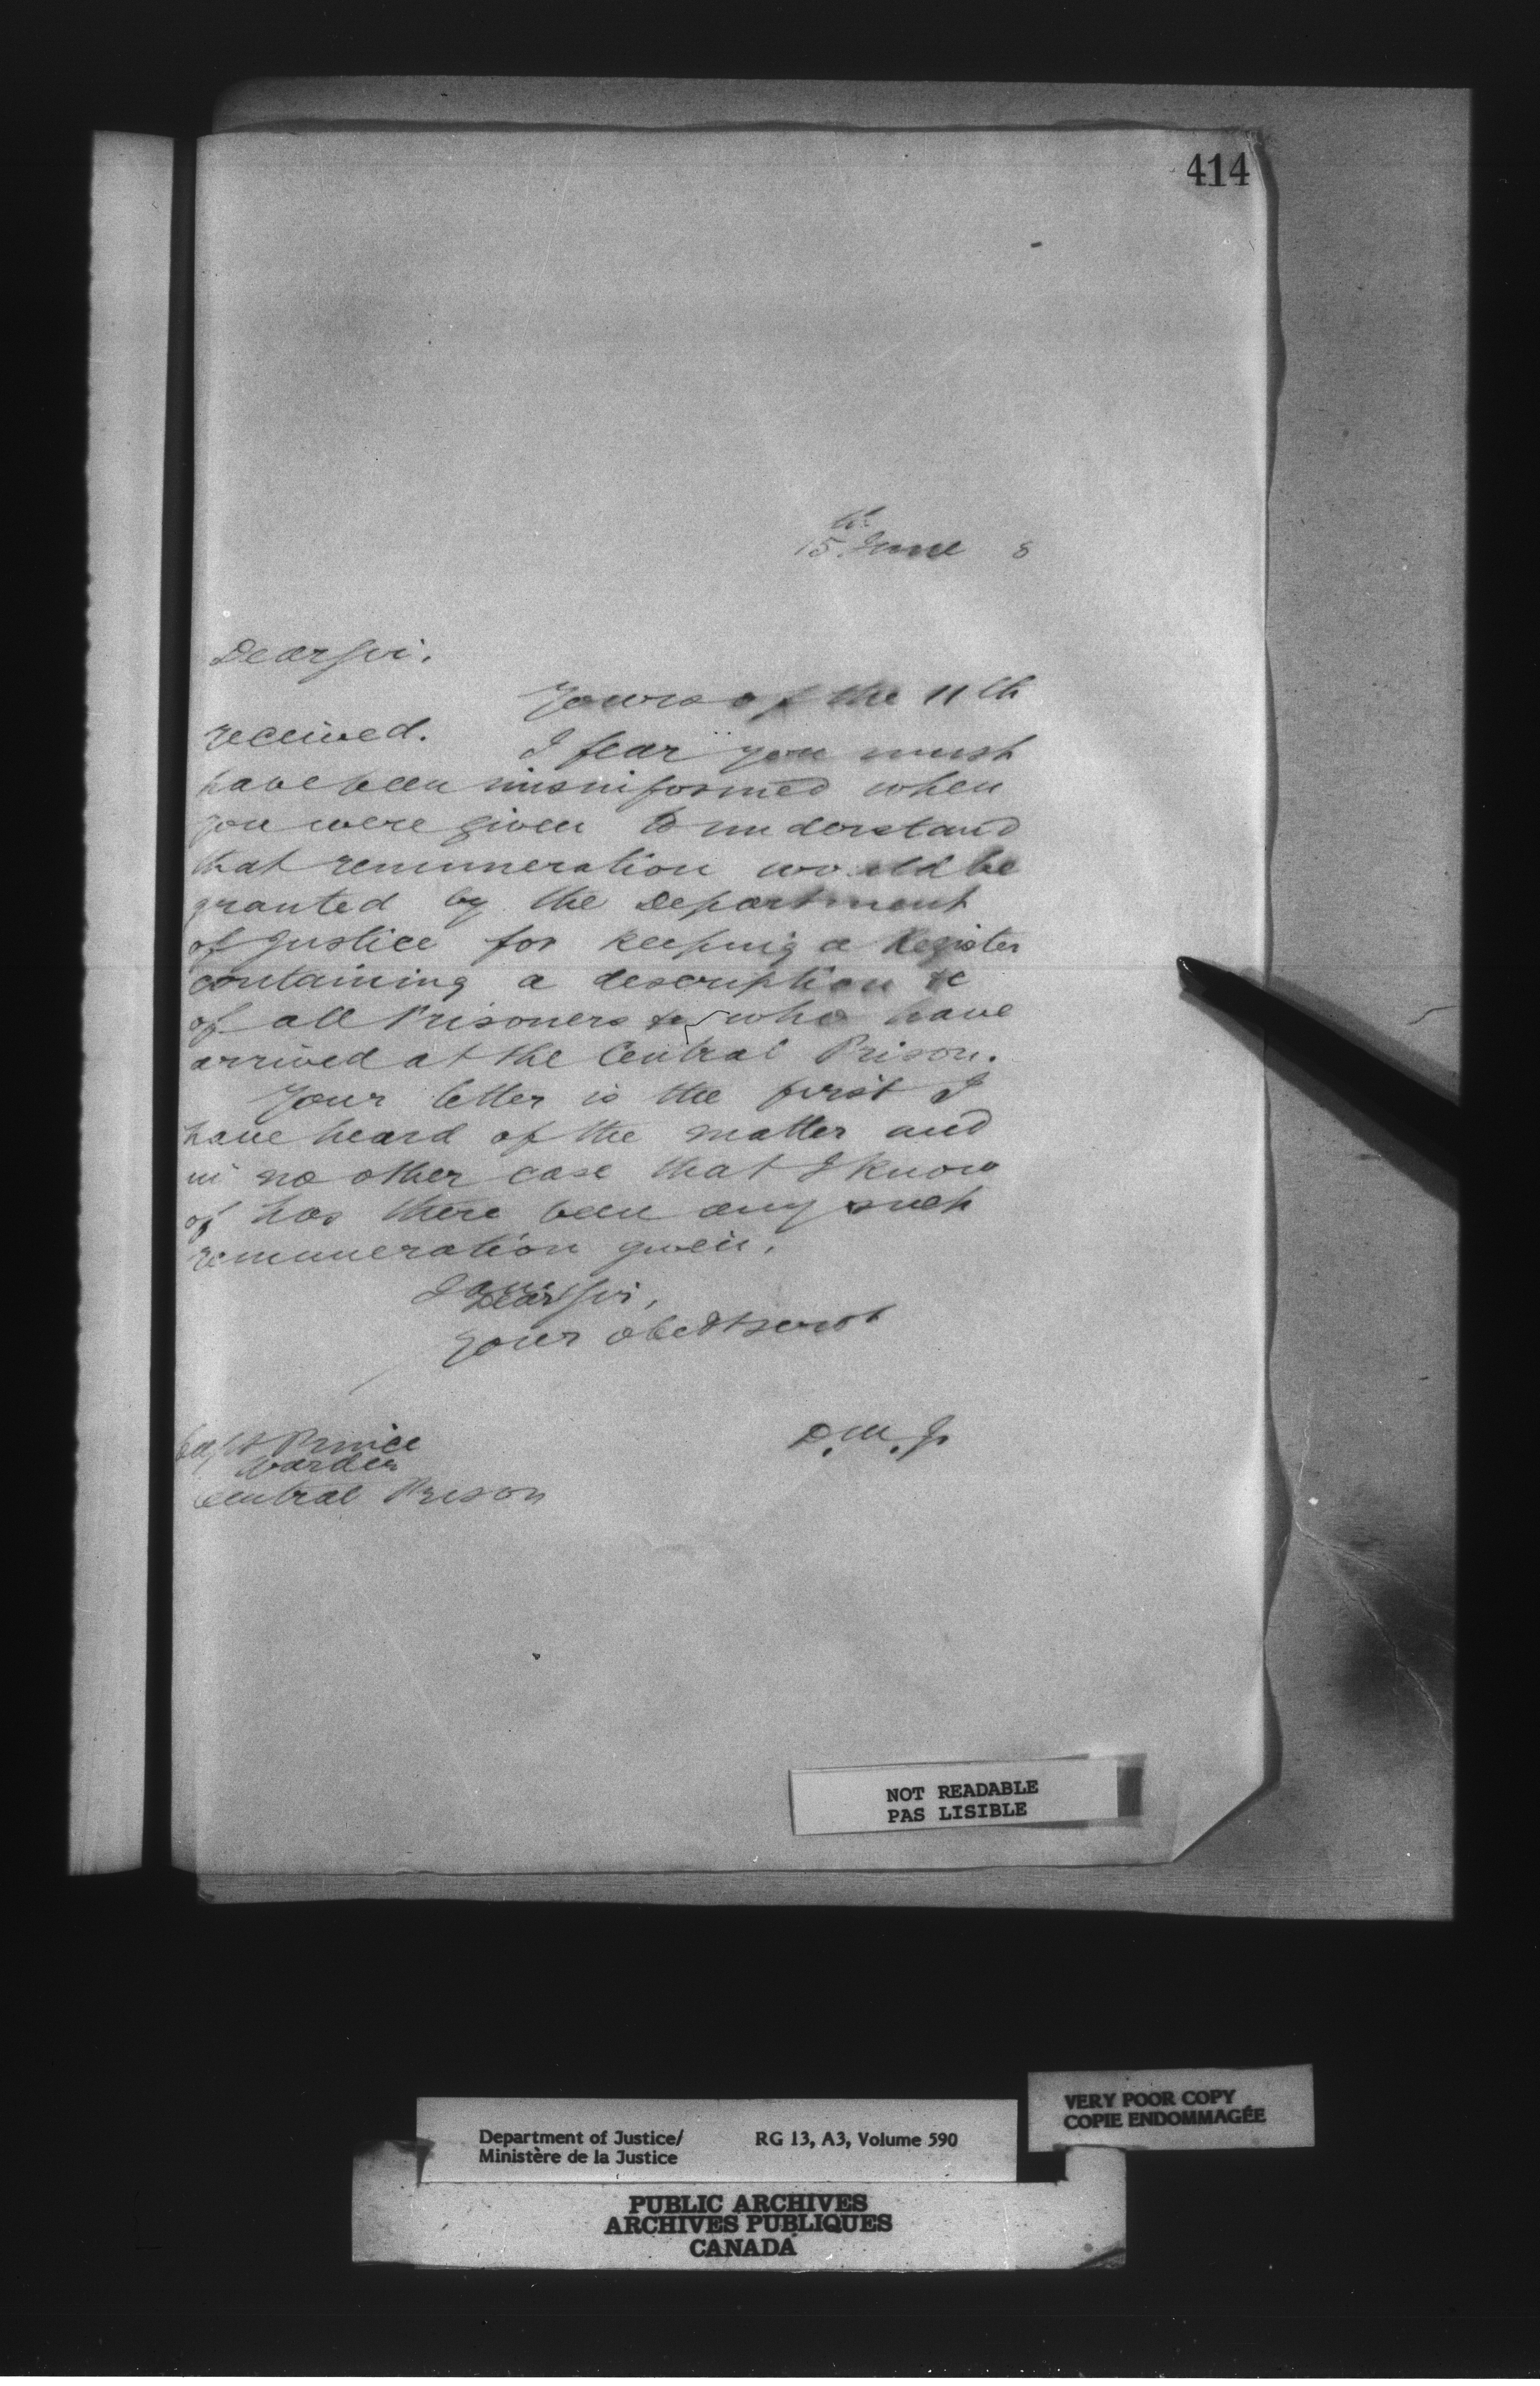 414
15th June 8
Dear Sir.
Yours of the 11th
received. I fear you must
have been misinformed when
you were given to understand
that remuneration would be
granted by the Department
of Justice for keeping a Register
containing a description &c
of all Prisoners who have
arrived at the Central Prison.
Your letter is the first I
have heard of the matter and
in no other case that I know
of has there been any such
remuneration given.
I am
Dear Sir,
Your obedt servt
D.M.J.
Capt Prince
Warden
Central Prison
NOT READABLE
PAS LISIBLE
VERY POOR COPY
COPIE ENDOMMAGÉE
Department of Justice/ RG 13, A3, Volume 590
Ministère de la Justice
PUBLIC ARCHIVES
ARCHIVES PUBLIQUES
CANADA